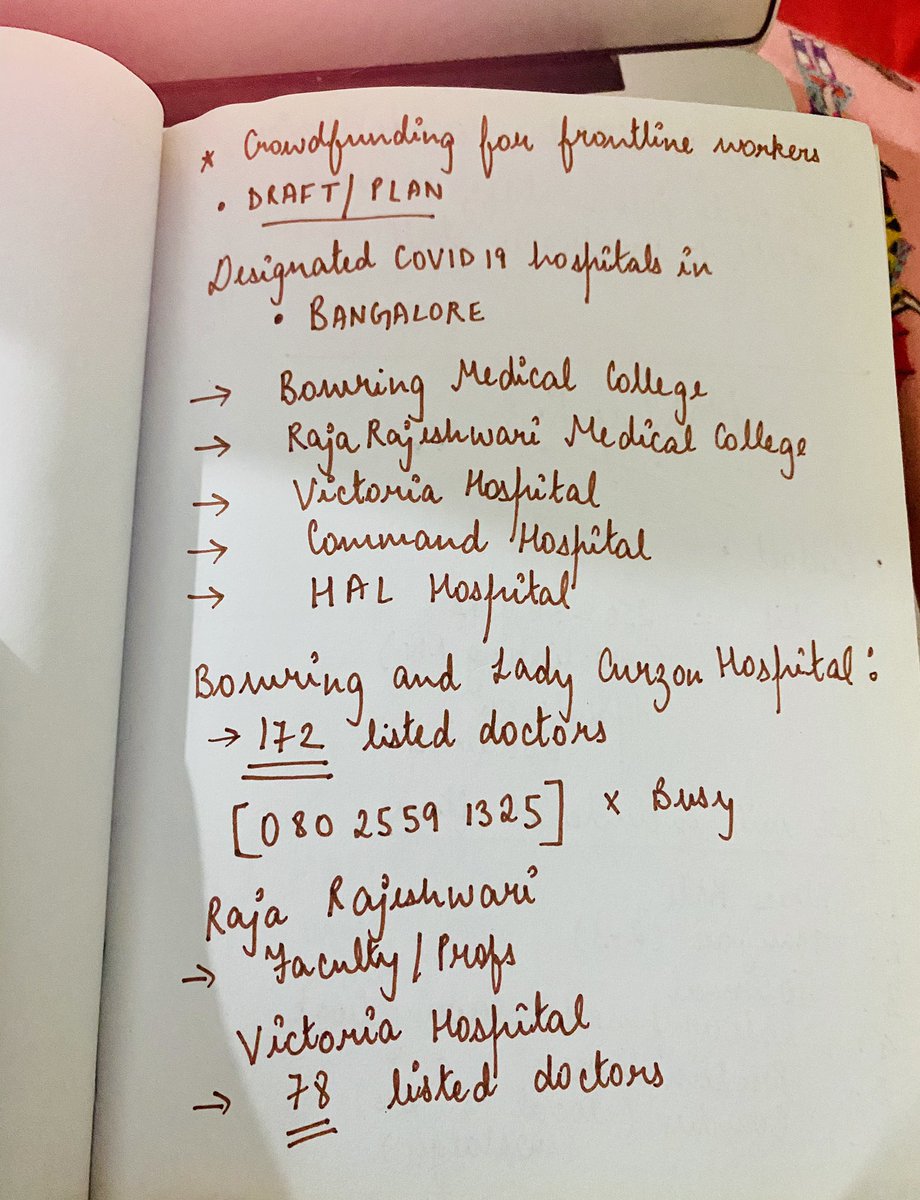 * Crowdfunding for frontline workers
• DRAFT/PLAN
Designated COVID19 hospitals in
• BANGALORE
→ Bowring Medical College
→ Raja Rajeshwari Medical College
→ Victoria Hospital
→ Command Hospital
→ HAL Hospital
Bowring and Lady Curzon Hospital:
→ 172 listed doctors
[080 2559 1325] × Busy
Raja Rajeshwari
→ Faculty/Profs
Victoria Hospital
→ 78 listed doctors